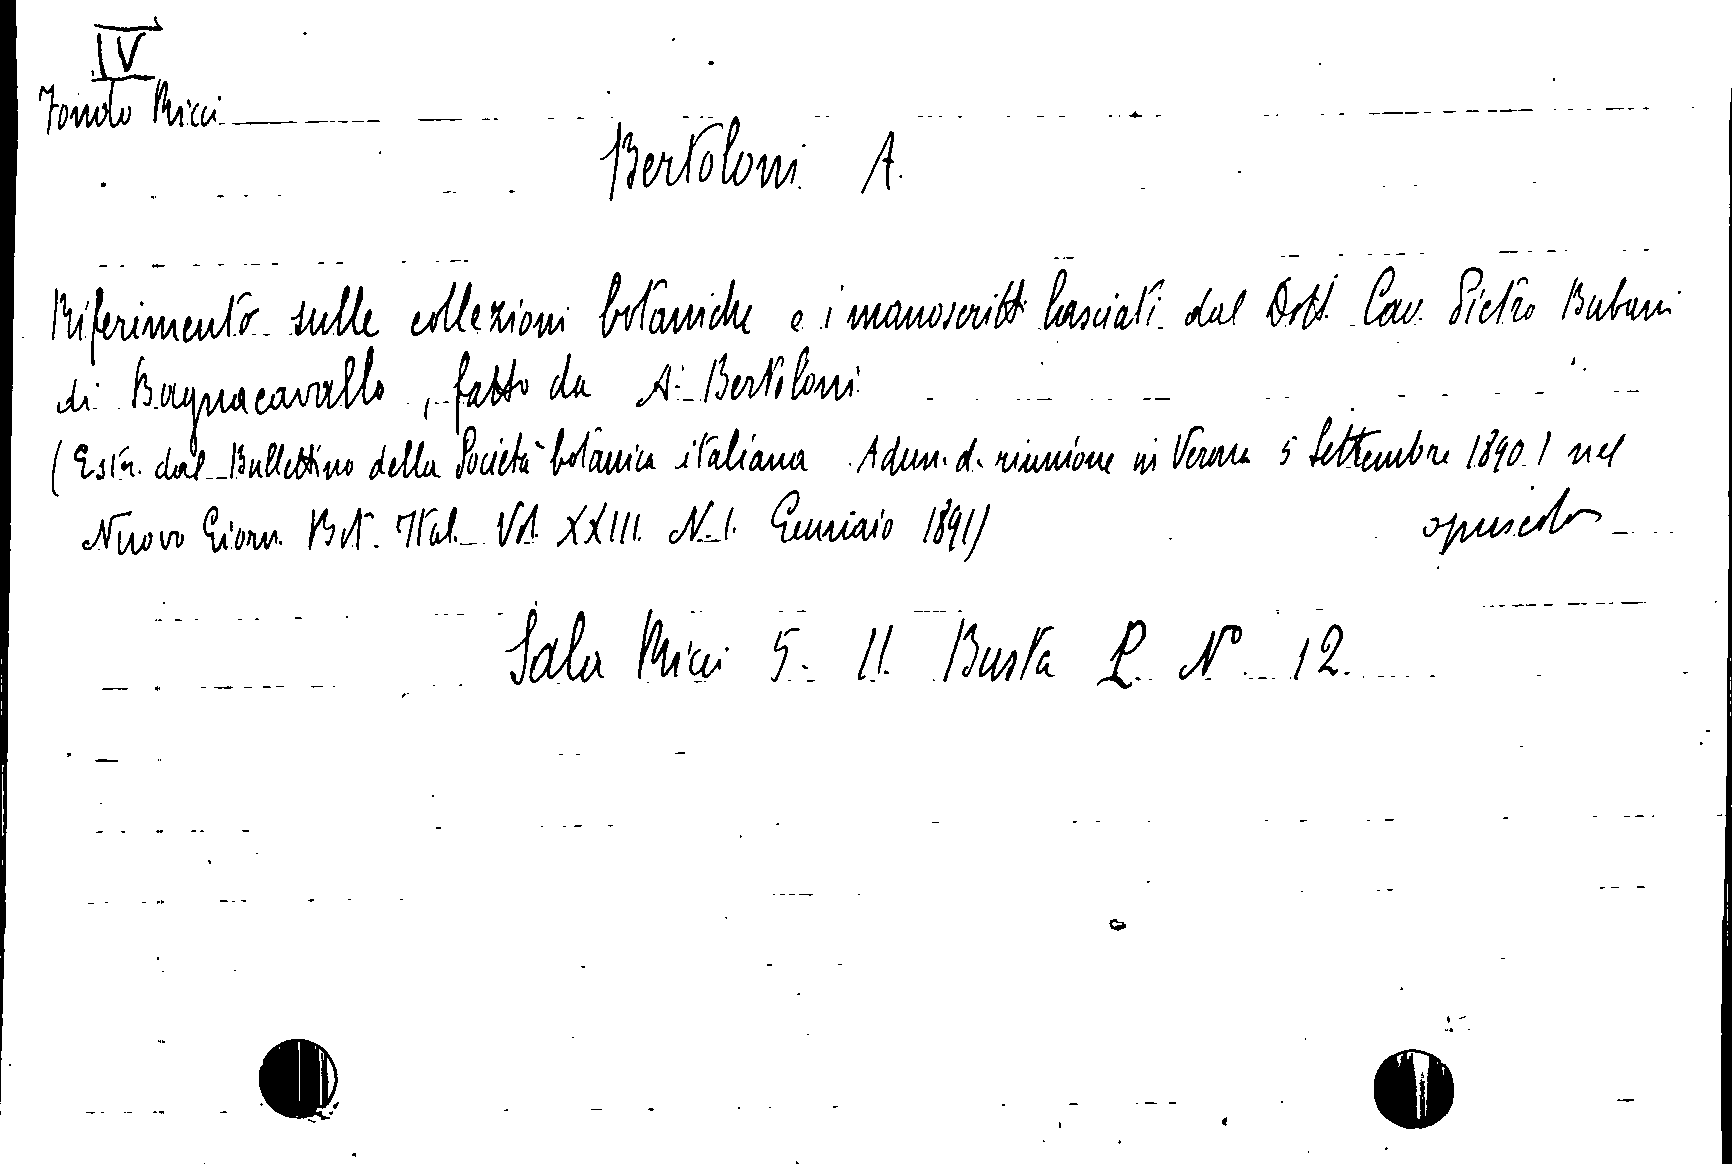 IV
Fondo Ricci
Bertoloni A.
Riferimento sulle collezioni botaniche e i manoscritti lasciati dal Dott. Cav. Pietro Bubani
di Bagnacavallo, fatto da A. Bertoloni
(Estr. dal Bullettino della Società botanica italiana Adun. d. riunione in Verona 5 Settembre 1890) nel
Nuovo Giorn. Bot. Ital. Vol. XXIII. N. 1. Gennaio 1891) opuscolo
Sala Ricci 5. 11. Busta P. N° 12.